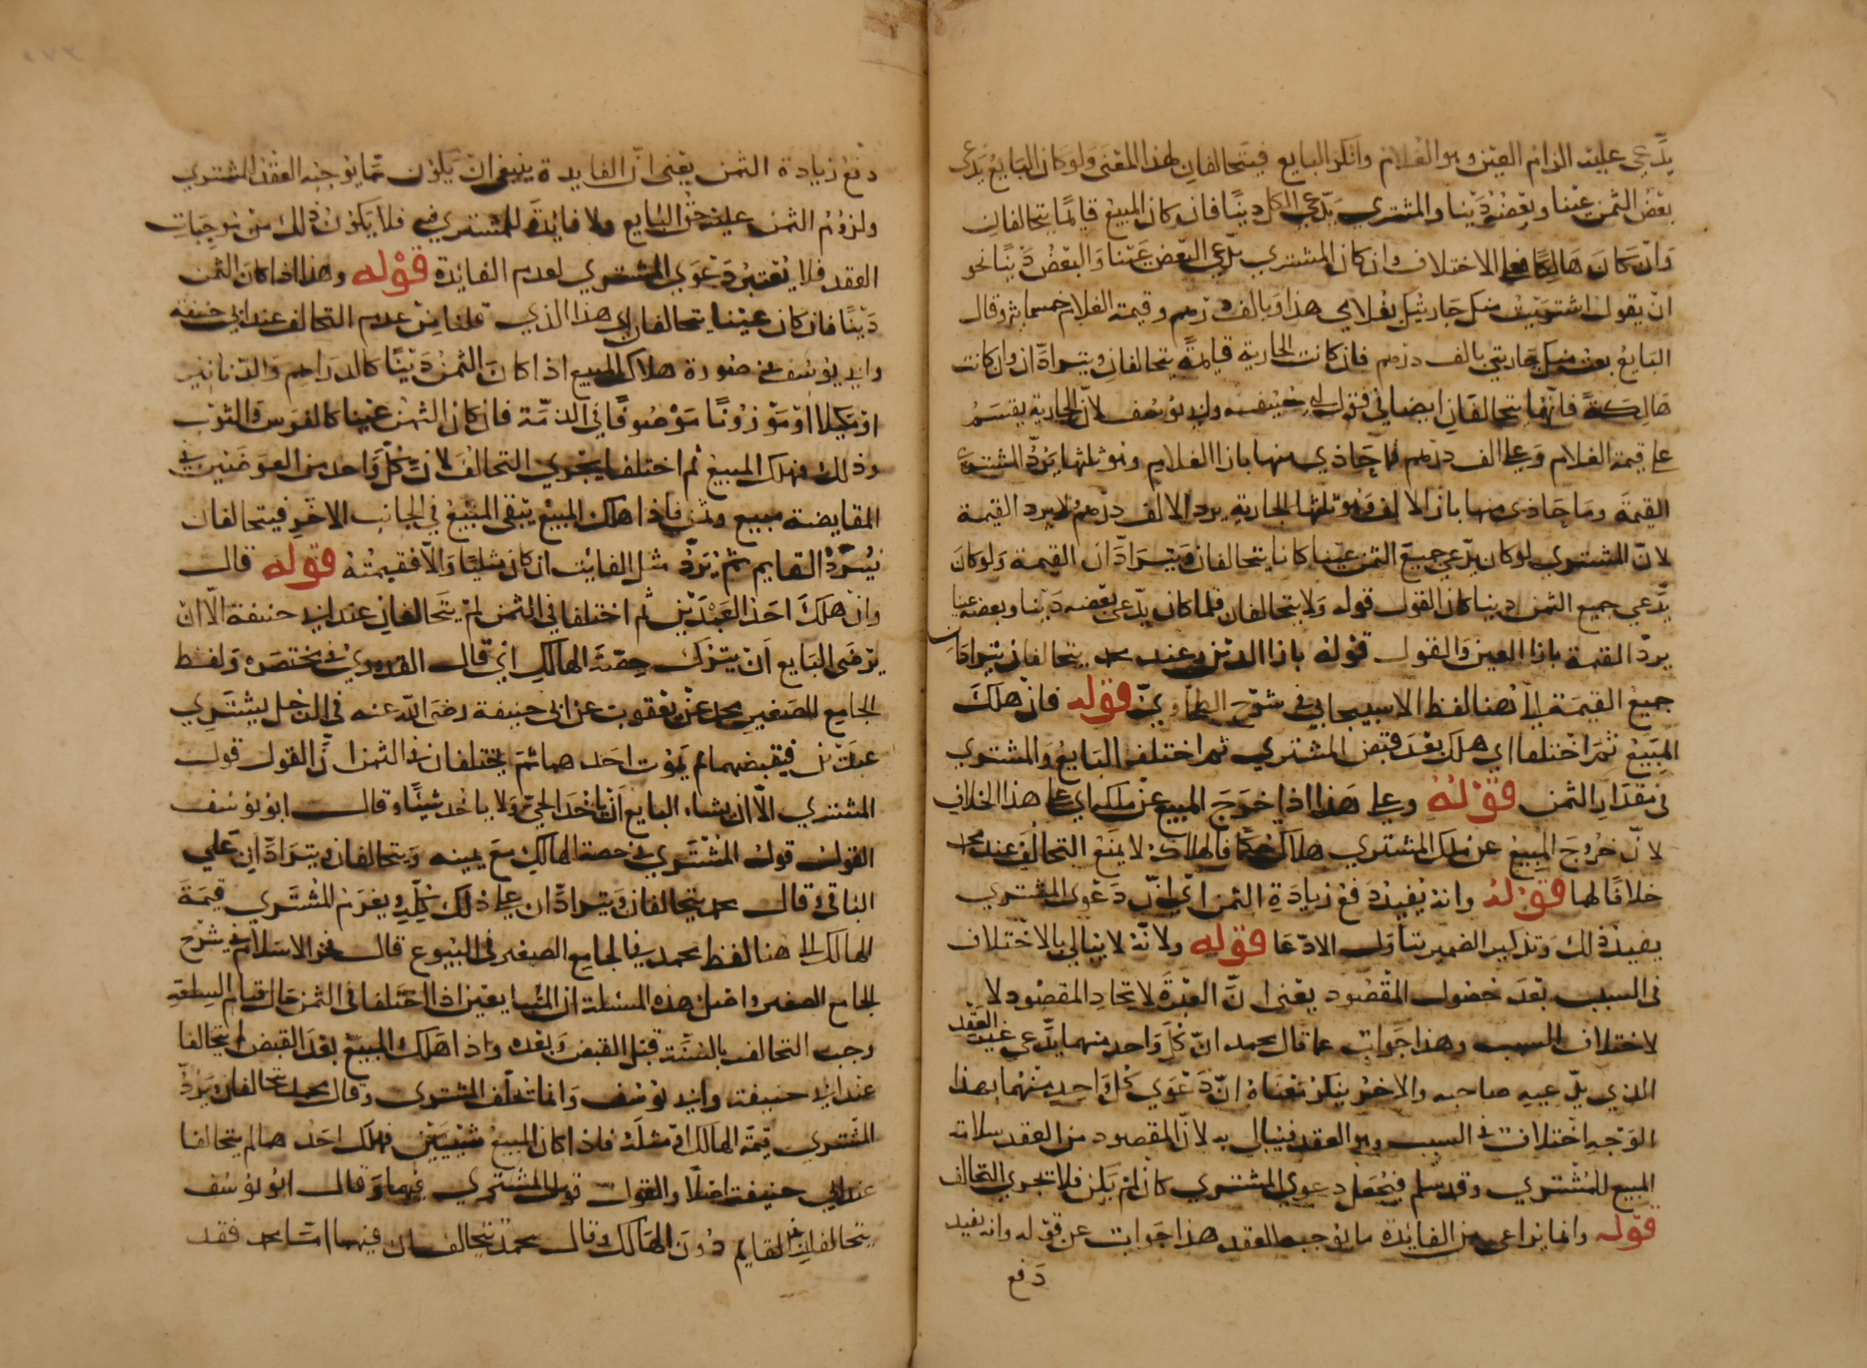 يدّعي عليه الزام العين وهو الغلام وانكر البايع فيتحالفان لهذا المعنى ولو كان البايع يدعى
بعض الثمن عينا وبعضه دينا والمشترى يدّعي الكل دينا فان كان المبيع قايما يتحالفان
وان كان هالكا فعلى الاختلاف وان كان المشتري يدّعي البعض عينا والبعض دينا نحو
ان يقول اشتريت منك جاريتك بغلامي هذا وبالف درهم وقيمة الغلام خمسمائة وقال
البايع بعت منك جاريتي بالف درهم فان كانت الجارية قايمة يتحالفان ويترادّان وان كانت
هالكة فانهما يتحالفان ايضا في قول ابي حنيفه وابي يوسف لانّ الجارية يقسم
على قيمة الغلام وعلى الف درهم فما حاذى منها بازا الغلام وهو ثلثها يردّ المشترى
القيمة وما حاذى منها بازا الالف وهو ثلثا الجارية يرد الالف درهم ولا يرد القيمة
لانّ المشتري لو كان يدّعي جميع الثمن عينا كانا يتحالفان ويترادّان القيمة ولو كان
يدّعي جميع الثمن دينا كان القول قوله ولا يتحالفان فلما كان يدّعي بعضه دينا وبعضه عينا
يردّ القيمة بازا العين والقول قوله بازا الدين وعند محمد يتحالفان يترادان
جميع القيمة الى هنا لفظ الاسبيجابي في شرح الطحاويّ قوله فان هلك
المبيع ثم اختلفا اي هلك بعد قبض المشتري ثم اختلف البايع والمشتري
في مقدار الثمن قوله وعلى هذا اذا خرج المبيع عن ملكه اي على هذا الخلاف
لانّ خروج المبيع عن ملك المشتري هلاك حكما فالهلاك لا يمنع التحالف عند محمد
خلافا لهما قوله وانه يفيد دفع زيادة الثمن اي انّ دعوى المشتري
يفيد ذلك وتذكير الضمير بتاويل الادّعا قوله ولانّه لا يبالي بالاختلاف
في السبب بعد حصول المقصود يعني انّ العبرة لاتحاد المقصود لا
لاختلاف السبب وهذا جواب عما قال محمد انّ كلّ واحد منهما يدّعي غير العقد
الذي يدّعيه صاحبه والاخر ينكر معناه انّ دعوى كل واحد منهما بهذا
الوجه اختلاف في السبب وهو العقد فيبالى به لانّ المقصود من العقد سلامة
المبيع للمشتري وقد سلم فيجعل دعوى المشتري كان لم يكن فلا تجري التحالف
قوله وانما يراعى من الفائدة ما يوجبه العقد هذا جواب عن قوله وانه يفيد
دفع
دفع زيادة الثمن يعني انّ الفايدة ينبغي ان يكون ممّا يوجبه العقد للمشتري
ولزوم الثمن عليه حق البايع ولا فائدة للمشتري فيه فلا يكون ذلك من موجبات
العقد فلا يعتبر دعوى المشتري لعدم الفايدة قوله وهذا اذا كان الثمن
دينا فان كان عينا يتحالفان اي هذا الذي قلنا من عدم التحالف عند ابي حنيفة
وابي يوسف في صورة هلاك المبيع اذا كان الثمن دينا كالدراهم والدنانير
او مكيلا او موزونا موصوفا في الذمّة فان كان الثمن عينا كالفرس والثوب
وذلك فهلك المبيع ثم اختلفا يجري التحالف لان كلّ واحد من العوضين في
المقايضة مبيع وثمن فاذا هلك المبيع يبقى المبيع في الجانب الاخر فيتحالفان
فيردّ القايم ثم يردّ مثل الفايت ان كان مثليّا والّا فقيمته قوله قال
وان هلك احد العبدين ثم اختلفا في الثمن لم يتحالفان عند ابي حنيفة الّا ان
يرضى البايع ان يترك حصّة الهالك اي قال القدوري في مختصره ولفظ
الجامع الصغير محمد عن يعقوب عن ابى حنيفة رضي الله عنه في الرجل يشتري
عبدين فيقبضهما ثم يموت احدهما ثم يختلفان في الثمن انّ القول قول
المشتري الّا ان يشاء البايع ان ياخذ الحيّ ولا ياخذ شيئا وقال ابو يوسف
القول قول المشتري في حصة الهالك مع يمينه ويتحالفان ويترادّان على
الباقي وقال محمد يتحالفان ويترادّان على ذلك كلّه ويغرم المشتري قيمة
الهالك الى هنا لفظ محمد في الجامع الصغير في البيوع قال فخر الاسلام في شرح
الجامع الصغير واصل هذه المسئلة ان المتبايعين اذا اختلفا في الثمن حال قيام السلعة
وجب التحالف بالسّنّة قبل القبض وبعده واذا هلك المبيع بعد القبض لم يتحالفا
عند ابي حنيفة وابي يوسف وانما تحلّف المشتري وقال محمد يتحالفان ويردّ
المشتري قيمة الهالك او مثله فاذا كان المبيع شيئين فهلك احدهما لم يتحالفا
عند ابي حنيفة اصلا والقول قول المشتري فيهما وقال ابو يوسف
يتحالفان في القايم دون الهالك وقال محمد يتحالفان فيهما امّا محمد فقد